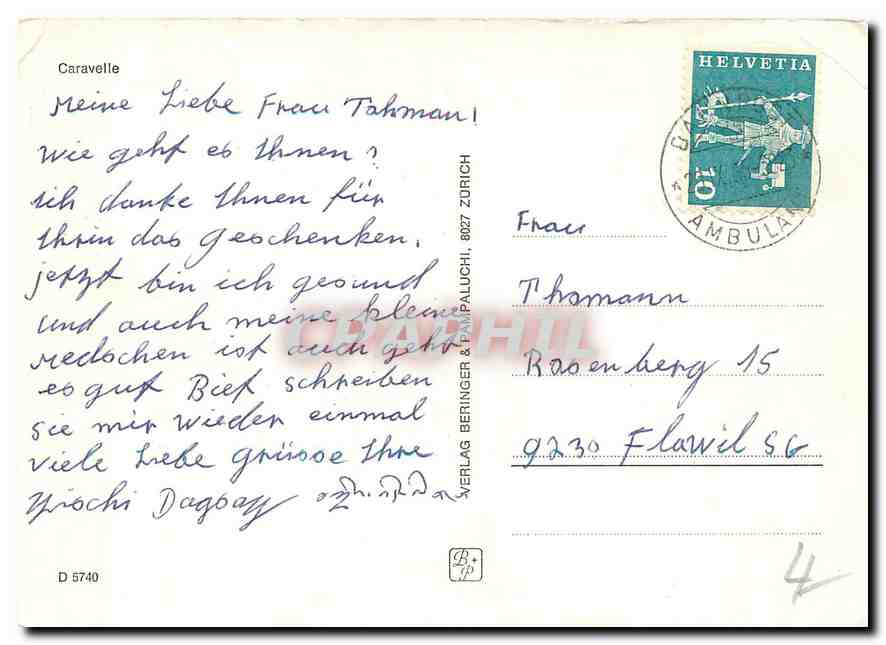 Caravelle
HELVETIA
10
AMBULAN
Meine Liebe Frau Tahman!
Wie geht es Ihnen?
ich danke Ihnen für
Ihrin das Geschenken.
jetzt bin ich gesund
und auch meine kleine
Medschen ist auch geht
es gut Biet schreiben
Sie mir wieder einmal
viele Liebe Grüsse Ihre
Dagsay
VERLAG BERINGER & PAMPALUCHI, 8027 ZÜRICH
Frau
Thomann
Rosenberg 15
9230 Flawil SG
D 5740
B+P
4
CPAPHIL